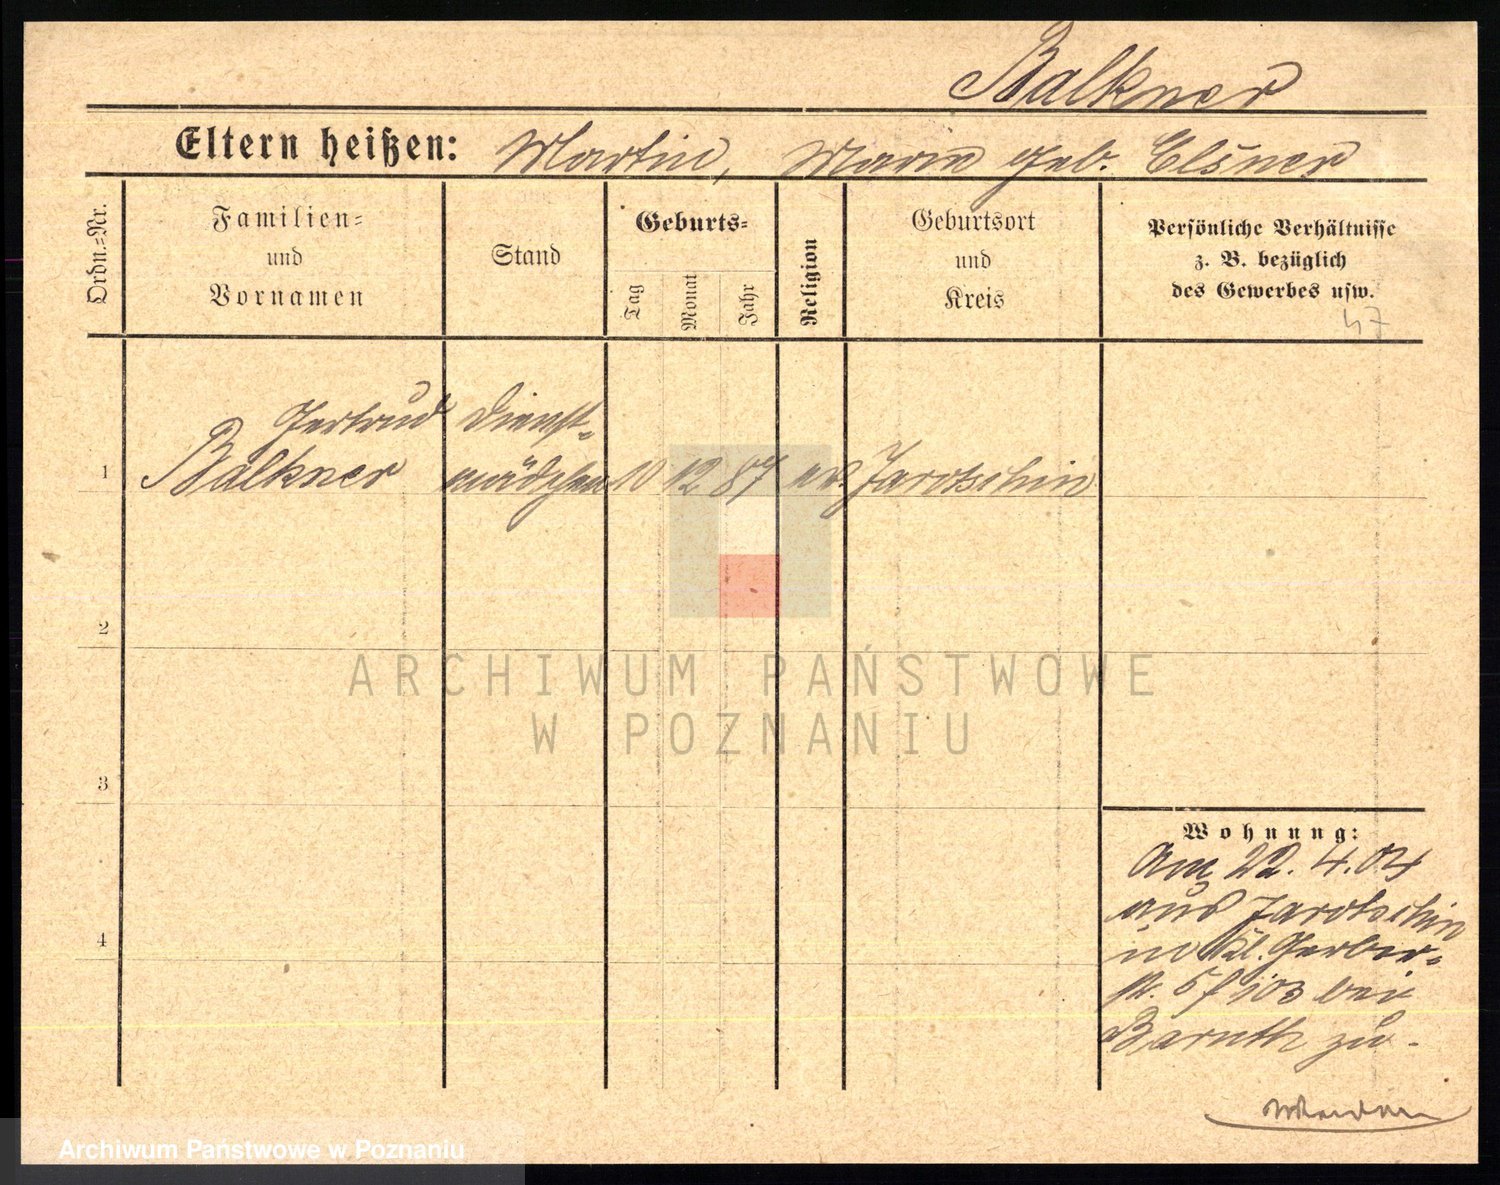 Balkner
Eltern heißen: Martin, Marie geb. Elsner
Ordn.=Nr.
Familien=
und
Vornamen
Stand
Geburts=
Tag
Monat
Jahr
Religion
Geburtsort
und
Kreis
Persönliche Verhältnisse
z. B. bezüglich
des Gewerbes usw.
47
Gertrud Dienst=
1 Balkner mädchen 10 12 87 ev. Jarotschin
2
3
4
Wohnung:
Am 22. 4. 04
aus Jarotschin
in Kl. Gerber=
str. 5 bei
Baruth zu.
ARCHIWUM PAŃSTWOWE
W POZNANIU
Archiwum Państwowe w Poznaniu